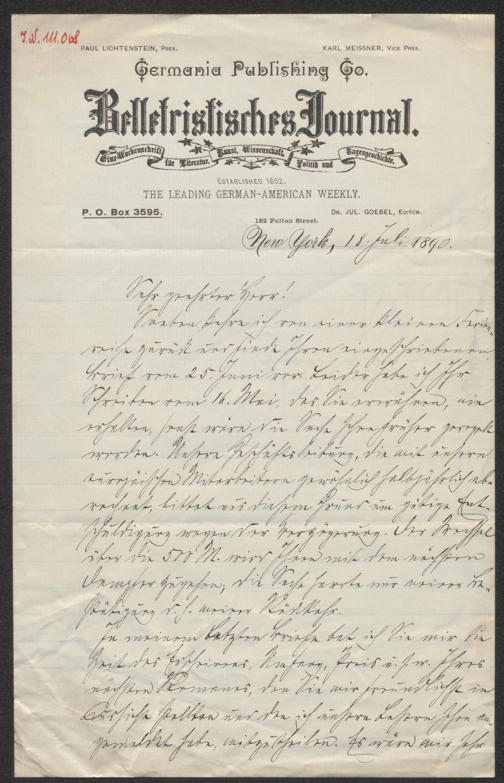 J.N. 111.068
PAUL LICHTENSTEIN, Pres. KARL MEISSNER, Vice Pres.
Germania Publishing Co.
Belletristisches Journal.
Eine Wochenschrift für Literatur, Kunst, Wissenschaft, Politik und Tagesgeschichte.
ESTABLISHED 1852.
THE LEADING GERMAN-AMERICAN WEEKLY.
P. O. Box 3595. DR. JUL. GOEBEL, EDITOR.
182 Fulton Street.
New York, 18. Juli 1890.
Sehr geehrter Herr!
Soeben kehre ich von einer kleinen Ferien-
reise zurück und finde Ihren eingeschriebenen
Brief vom 25. Juni vor. Leider habe ich Ihr
Schreiben vom 16. Mai, das Sie erwähnen, nie
erhalten, sonst wäre die Sache schon früher geregelt
worden. Unsere Geschäftsleitung, die mit unsern
europäischen Mitarbeitern gewöhnlich halbjährlich ab-
rechnet, bittet aus diesem Grund um gütige Ent-
schuldigung wegen der Verzögerung. Der Wechsel
über die 500 M. wird Ihnen mit dem nächsten
Dampfer zugehen, die Sache harrte nur meiner Be-
stätigung d. h. meiner Rückkehr.
In meinem letzten Briefe bat ich Sie mir die
Zeit des Erscheinens, Umfang, Preis u. s. w. Ihres
nächsten Romanes, den Sie mir freundlichst in
Aussicht stellten und den ich unsern Lesern schon an-
gemeldet habe, mitzutheilen. Es wäre mir sehr